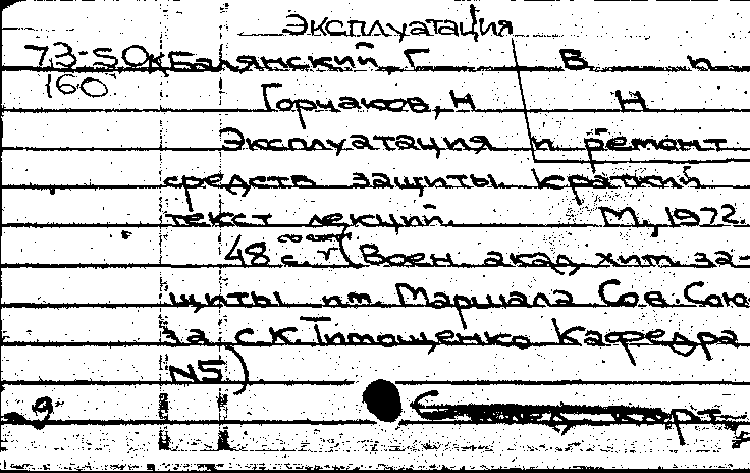 Эксплуатация
73-50к Балянский, Г В и
160
Горчаков, Н Н
Эксплуатация и ремонт
средств защиты. Краткий
текст лекций. М., 1972.
48 с. (Воен. акад. хим. за-
щиты им. Маршала Сов. Сою
за С.К. Тимошенко Кафедра
N5)